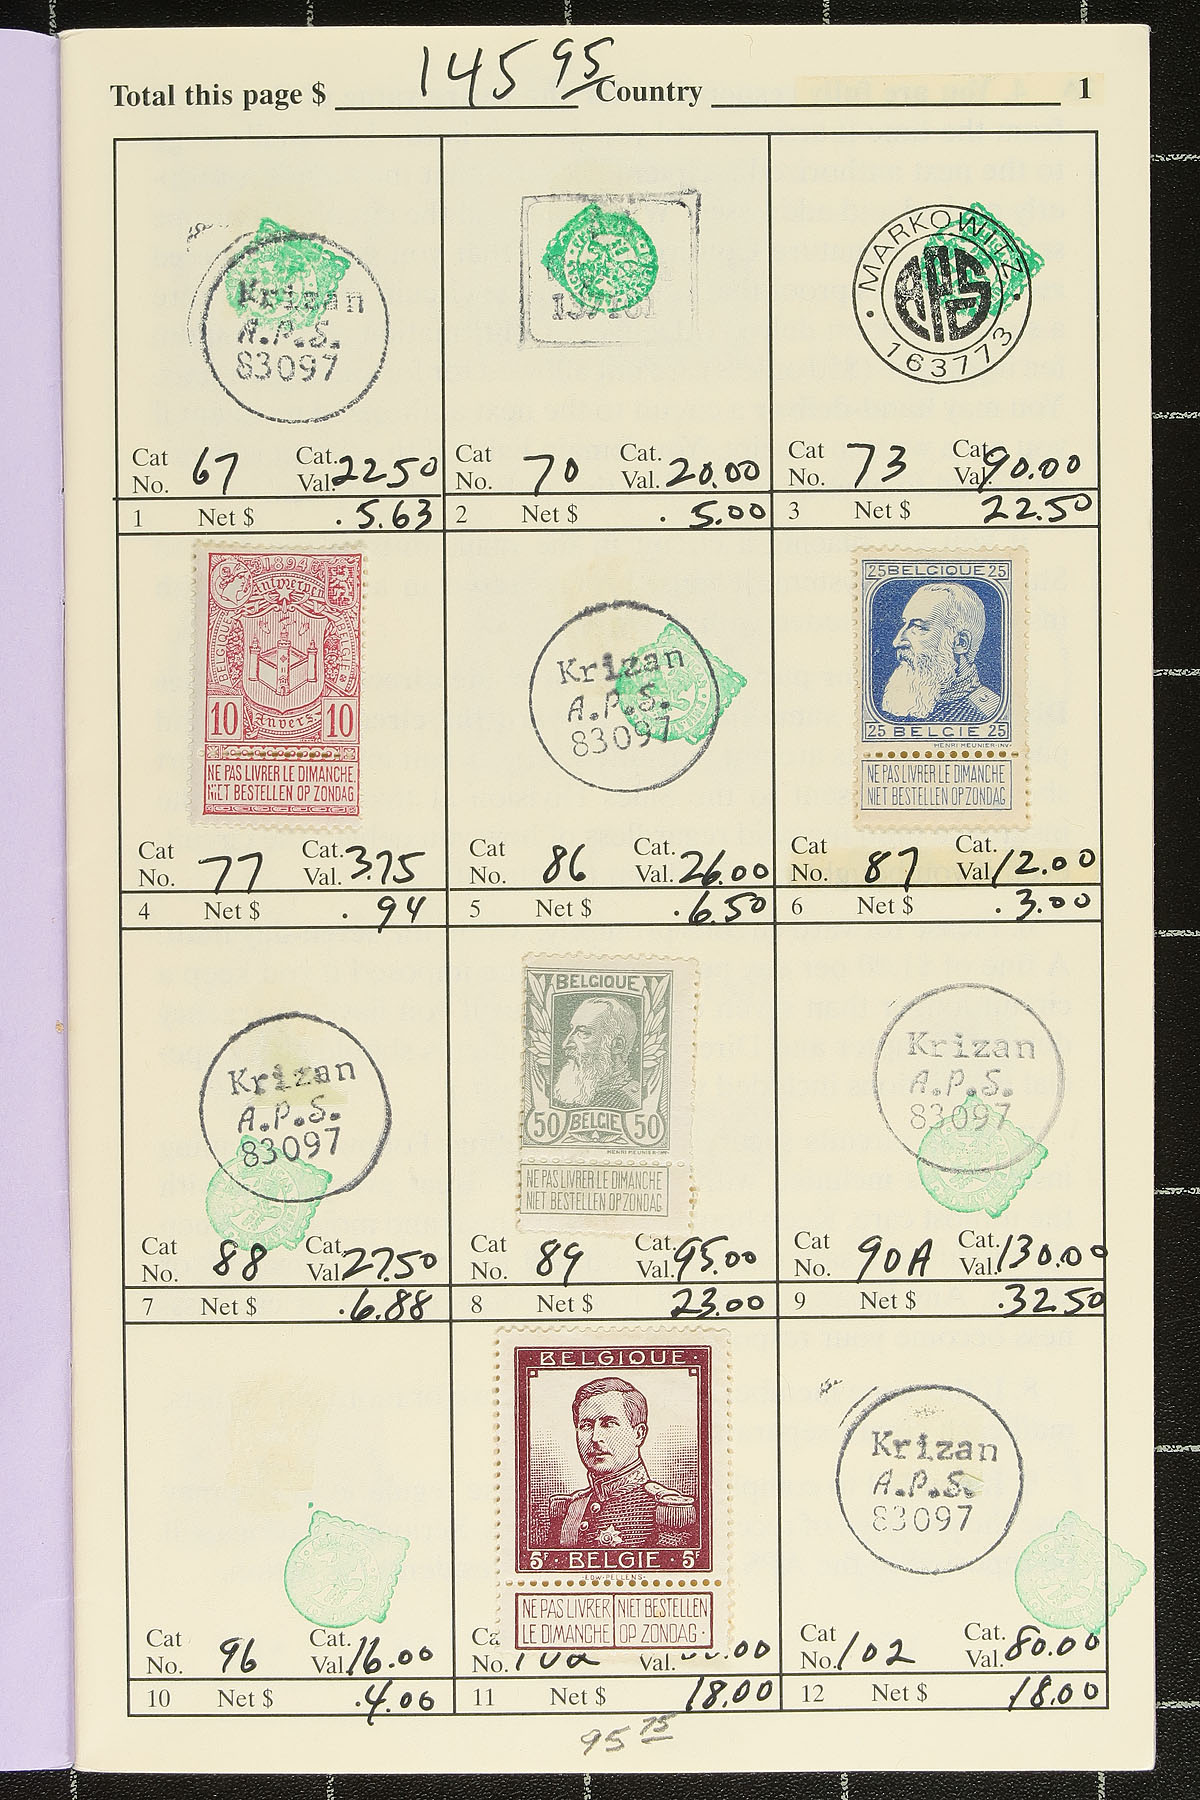 145 95
Total this page $ Country 1
Krizan
A.P.S.
83097
MARKOWITZ
APS
163773
Cat No. 67 Cat. Val. 22 50
1 Net $ .5.63
Cat No. 70 Cat. Val. 20.00
2 Net $ .5.00
Cat No. 73 Cat. Val. 90.00
3 Net $ 22.50
1894
Antwerpen
BELGIQUE
BELGIË
10 Anvers 10
NE PAS LIVRER LE DIMANCHE.
NIET BESTELLEN OP ZONDAG
Krizan
A.P.S.
83097
25 BELGIQUE 25
25 BELGIE 25
HENRI MEUNIER·INV·
NE PAS LIVRER LE DIMANCHE
NIET BESTELLEN OP ZONDAG
Cat No. 77 Cat. Val. 3.75
4 Net $ .94
Cat No. 86 Cat. Val. 26.00
5 Net $ .6.50
Cat No. 87 Cat. Val. 12.00
6 Net $ .3.00
Krizan
A.P.S.
83097
BELGIQUE
50 BELGIE 50
HENRI MEUNIER·INV·
NE PAS LIVRER LE DIMANCHE
NIET BESTELLEN OP ZONDAG
Krizan
A.P.S.
83097
Cat No. 88 Cat. Val. 27.50
7 Net $ .6.88
Cat No. 89 Cat. Val. 95.00
8 Net $ 23.00
Cat No. 90A Cat. Val. 130.00
9 Net $ .32.50
BELGIQUE
5F · BELGIE · 5F
·EDW·PELLENS·
NE PAS LIVRER NIET BESTELLEN
LE DIMANCHE OP ZONDAG·
Krizan
A.P.S.
83097
Cat No. 96 Cat. Val. 16.00
10 Net $ .4.00
No. Val.
11 Net $ 18.00
Cat No. 102 Cat. Val. 80.00
12 Net $ 18.00
95 75